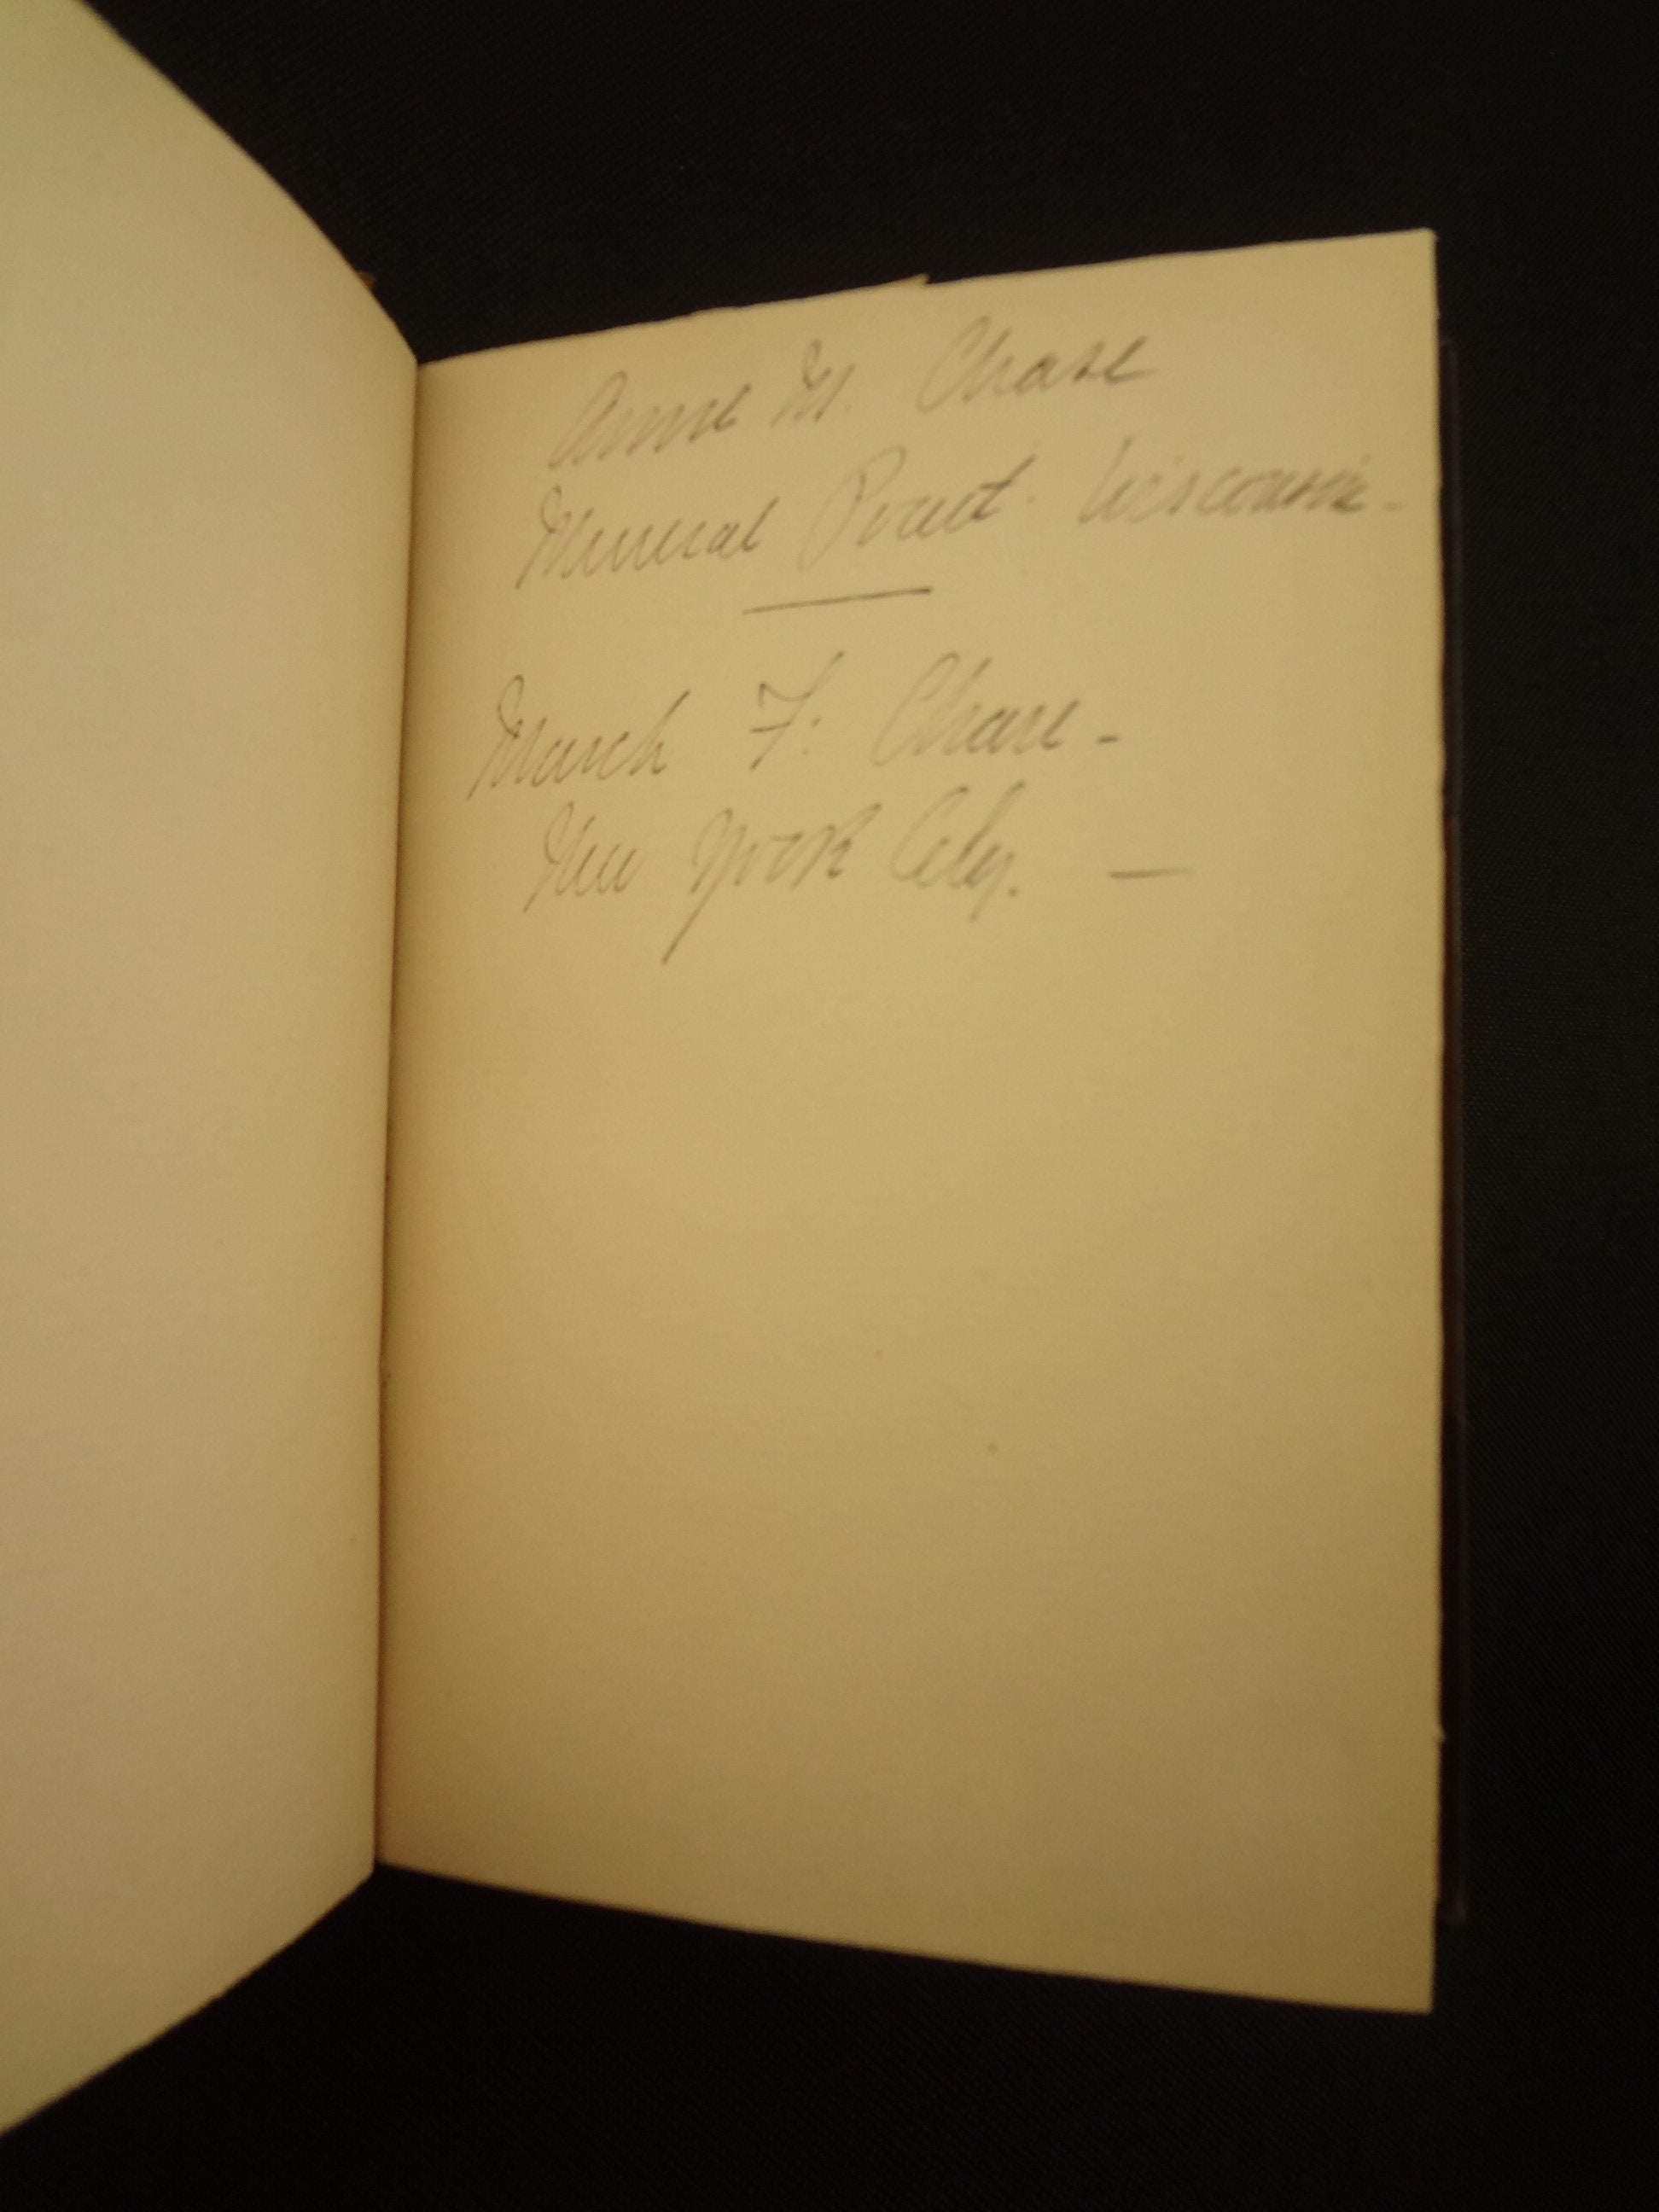 Anne M. Chase
Mineral Point. Wisconsin-
March F. Chase-
New York City. —